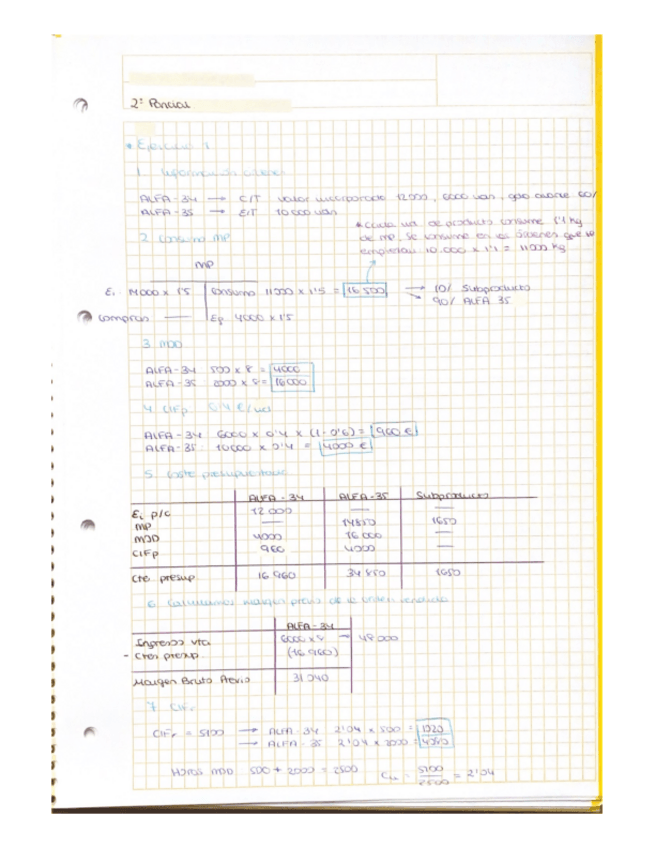 2º Parcial
* Ejercicio 1
1. Información clave:
ALFA-34 → C/T valor incorporado 12000, 6000 uan, grado avance 60%
ALFA-35 → E/T 10000 uan
* Cada ud. de producto consume 1'1 kg
de MP. Se consume en las órdenes que se
empiezan 10.000 x 1'1 = 11000 kg
2. Consumo MP
MP
Ei 14000 x 1'5 Consumo 11000 x 1'5 = 16500 → 10% Subproducto
→ 90% ALFA 35
Compras — Ef 4000 x 1'5
3. MOD
ALFA-34 500 x 8 = 4000
ALFA-35 2000 x 8 = 16000
4. CIFp 0'4 €/ud
ALFA-34 6000 x 0'4 x (1-0'6) = 960 €
ALFA-35 10000 x 0'4 = 4000 €
5. Coste presupuestado
ALFA-34 ALFA-35 Subproducto
Ei p/c 12000 — —
MP — 14850 1650
MOD 4000 16000 —
CIFp 960 4000 —
Cte presup 16960 34850 1650
6. Calculamos margen previo de la orden vendida
ALFA-34
Ingresos vta. 6000 x 8 → 48000
- Cten presup. (16960)
Margen Bruto Previo 31040
7. CIFr
CIFr = 5100 → ALFA-34 2'04 x 500 = 1020
→ ALFA-35 2'04 x 2000 = 4080
Horas MOD 500 + 2000 = 2500 = 5100/2500 = 2'04